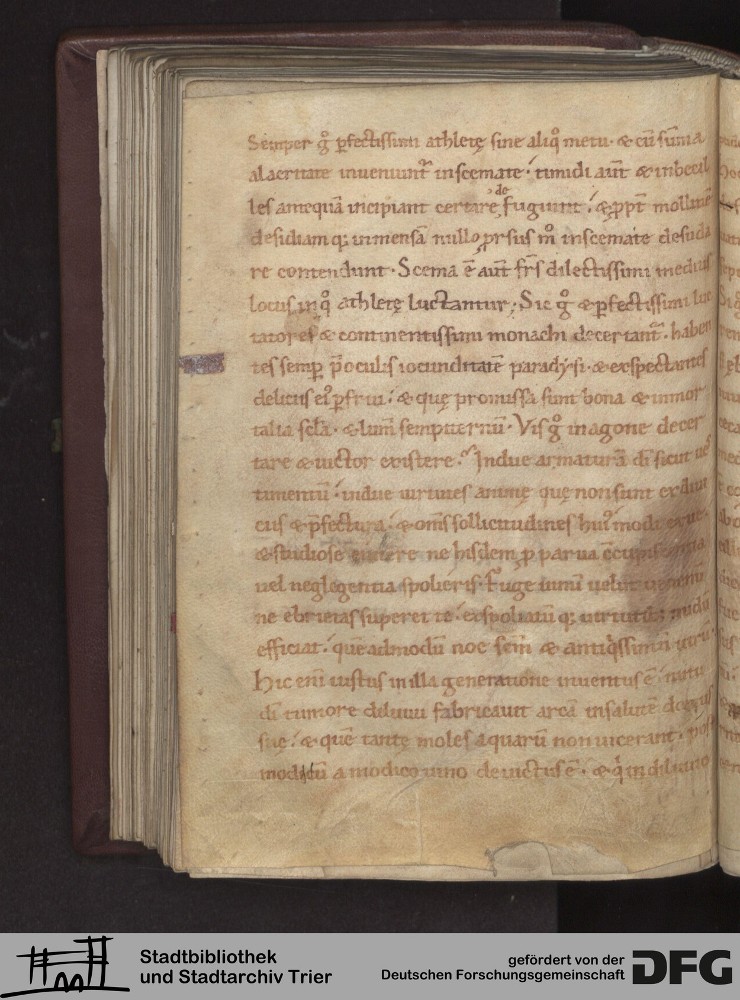 Semper g̊ ꝑfectissimi athletę sine aliq̊ metu · & cū sūma
alacritate inueniunt᷑ in scemate · timidi aūt & inbecil
les antequā incipiant certare, de fugiunt · & ꝓpt̄ mollitiē
desidiam q; inmensā nullo prsus m̊ in scemate desuda
re contendunt · Scema ē aūt frs̄ dilectissimi medius
locus, in q̊ athletę luctantur · Sic g̊ & ꝑfectissimi luc
tatores & continentissimi monachi decertant᷑ · haben
tes semꝑ p̄ oculis iocunditatē paradysi · & exspectantes
deliciis ei᷒ ꝑfrui · & quę promissa sunt bona & inmor
talia scl̄a · & lum̄ sempiternū · Vis g̊ in agone decer
tare & uictor existere · Indue armaturā dī sicut ues
timentū · indue uirtutes animę quę non sunt ex diui
cus & p̄fectura · & om̄s sollicitudines hui᷒ modi
& studiose ne hisdem ꝑ parua
uel neglegentia spolieris · Fuge uinū uelut uenenū
ne ebrietas superet te · exspoliatū q; uirtutib; nudū
efficiat · quēadmodū noe scm̄ & antiq̇ssimū uirū
Hic eni iustus in illa generatione inuentus ē · nutu
dī timore diluuii fabricauit arcā in salutē domus
suę · & quē tantę moles aquarū non uicerant · post
modicū a modico uino deuictus ē · & qi in diluuio
Stadtbibliothek
und Stadtarchiv Trier
gefördert von der
Deutschen Forschungsgemeinschaft
DFG